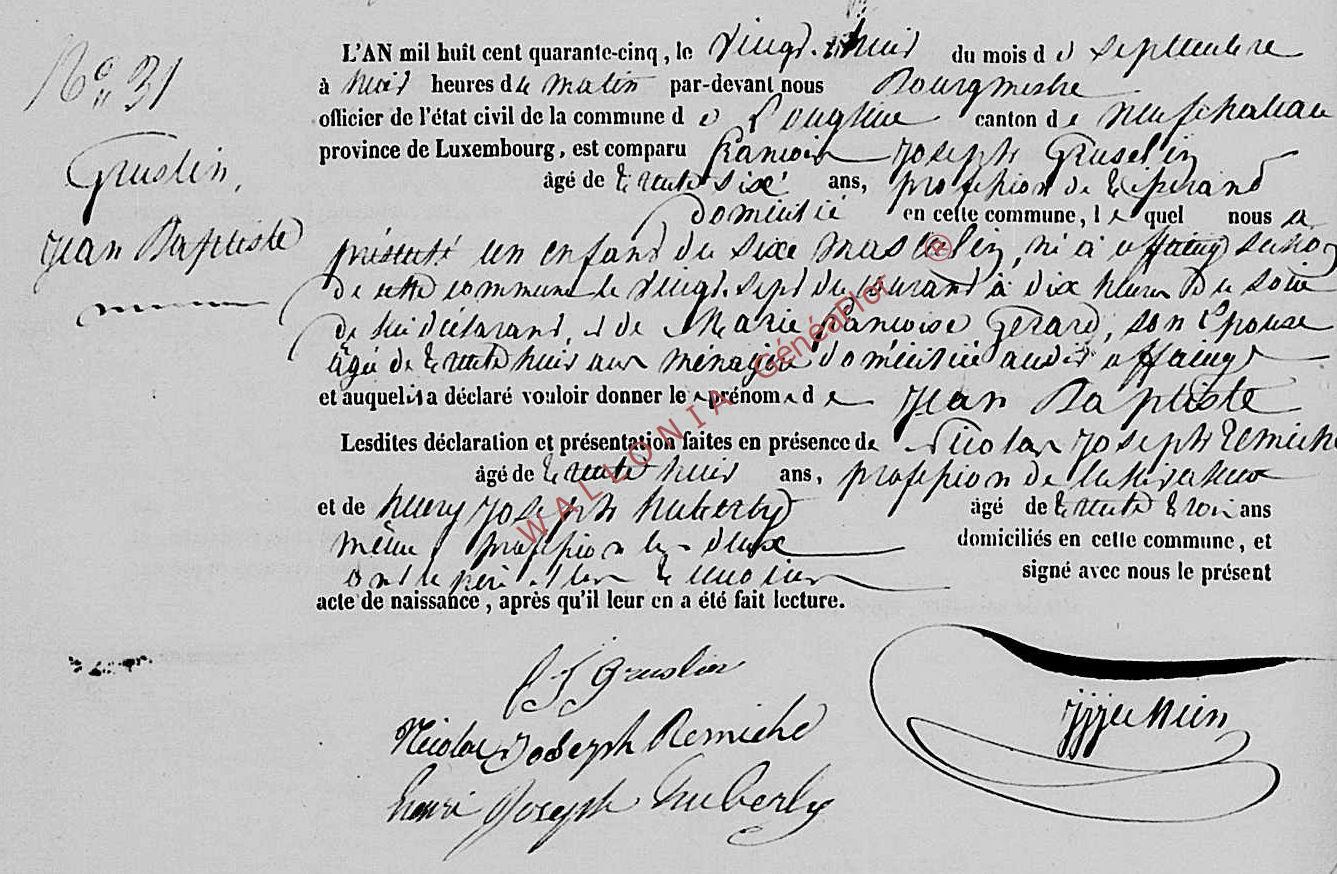 N° 31
Gruslin,
Jean Baptiste
L'AN mil huit cent quarante-cinq, le vingt-huit du mois de septembre
à huit heures du matin par-devant nous Bourgmestre
officier de l'état civil de la commune de canton de neufchateau
province de Luxembourg, est comparu francois Joseph Gruselin
âgé de trente six ans, profession de
domicilié en cette commune, lequel nous a
présenté un enfant du sixe masculin, né à offaing
de cette commune le vingt-sept du courant à dix heures de soir
de lui déclarant, et de Marie francoise Gérard, son Epouse
âgée de trente huit ans ménagère domiciliée audit offaing
et auquel il a déclaré vouloir donner le prénom de Jean Baptiste
Lesdites déclaration et présentation faites en présence de Nicolas Joseph Remiche
âgé de trente huit ans, profession de cultivateur
et de henry Joseph huberty âgé de trente trois ans
même profession les deux domiciliés en cette commune, et
ont le père et les temoins signé avec nous le présent
acte de naissance, après qu'il leur en a été fait lecture.
f J Gruslin
Nicolas Joseph Remiche
henri Joseph huberty
WALLONIA GénéaFlor ®